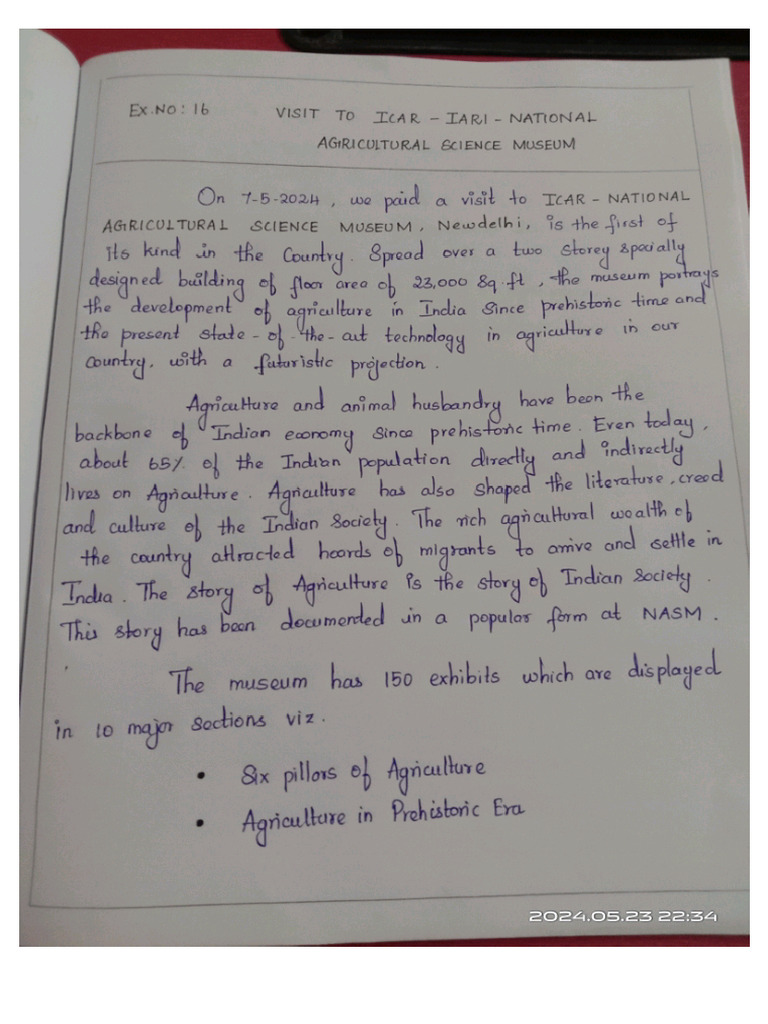 Ex.NO: 16 VISIT TO ICAR - IARI - NATIONAL
AGRICULTURAL SCIENCE MUSEUM
On 7-5-2024, we paid a visit to ICAR - NATIONAL
AGRICULTURAL SCIENCE MUSEUM, Newdelhi, is the first of
its kind in the Country. Spread over a two storey specially
designed building of floor area of 23,000 sq.ft, the museum portrays
the development of agriculture in India Since prehistoric time and
the present state-of-the-art technology in agriculture in our
country, with a futuristic projection.
Agriculture and animal husbandry have been the
backbone of Indian economy since prehistoric time. Even today,
about 65% of the Indian population directly and indirectly
lives on Agriculture. Agriculture has also shaped the literature, creed
and culture of the Indian Society. The rich agricultural wealth of
the country attracted hoords of migrants to arrive and settle in
India. The story of Agriculture is the story of Indian Society.
This story has been documented in a popular form at NASM.
The museum has 150 exhibits which are displayed
in 10 major sections viz.
• Six pillars of Agriculture
• Agriculture in Prehistoric Era
2024.05.23 22:34